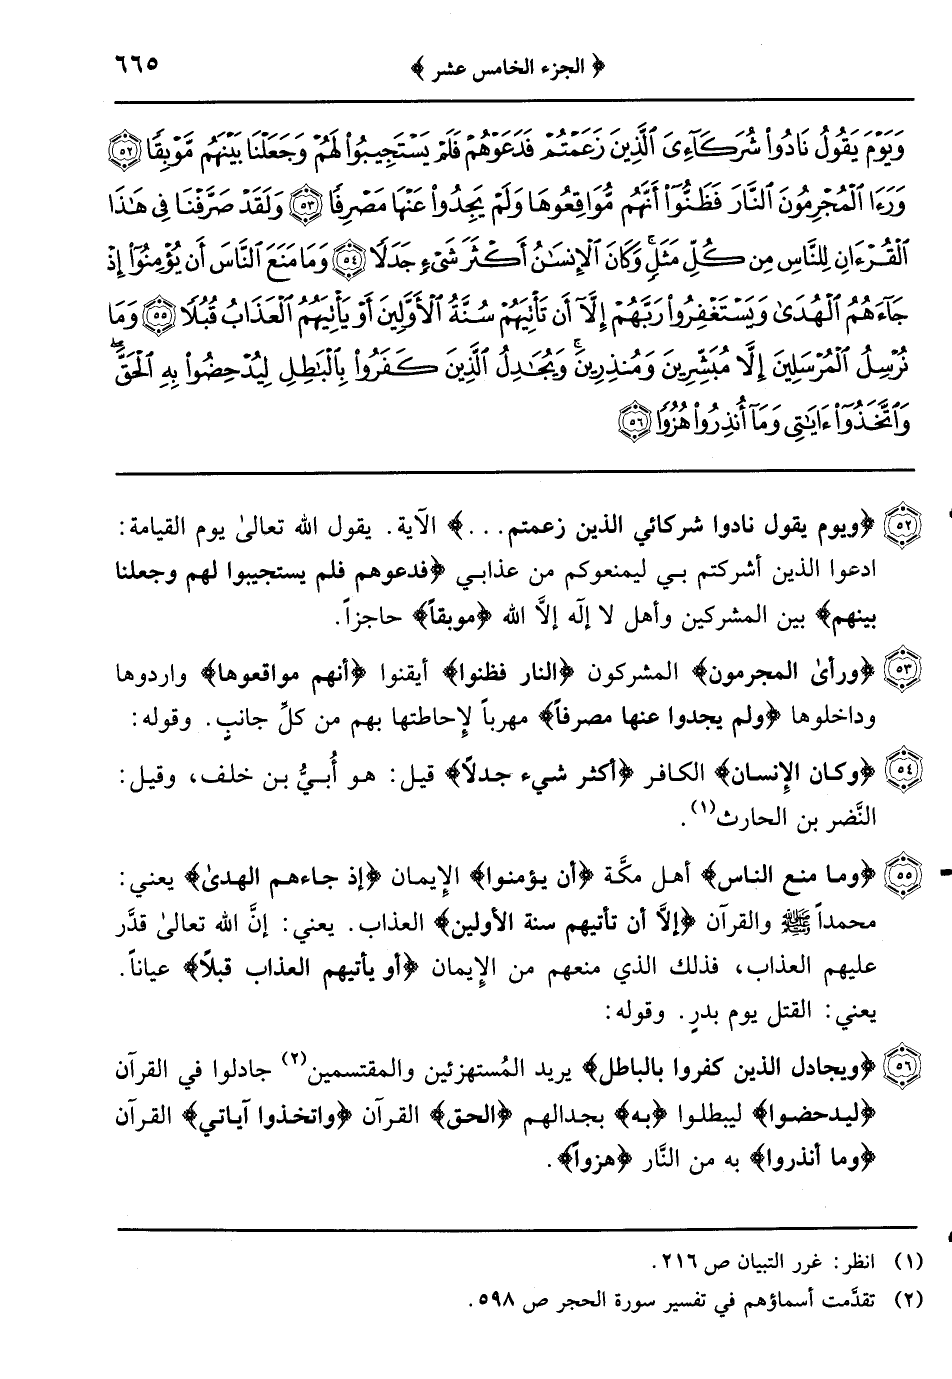 ﴿ الجزء الخامس عشر ﴾ ٦٦٥
وَيَوْمَ يَقُولُ نَادُوا۟ شُرَكَآءِىَ ٱلَّذِينَ زَعَمْتُمْ فَدَعَوْهُمْ فَلَمْ يَسْتَجِيبُوا۟ لَهُمْ وَجَعَلْنَا بَيْنَهُم مَّوْبِقًا ٥٢
وَرَءَا ٱلْمُجْرِمُونَ ٱلنَّارَ فَظَنُّوٓا۟ أَنَّهُم مُّوَاقِعُوهَا وَلَمْ يَجِدُوا۟ عَنْهَا مَصْرِفًا ٥٣ وَلَقَدْ صَرَّفْنَا فِى هَٰذَا
ٱلْقُرْءَانِ لِلنَّاسِ مِن كُلِّ مَثَلٍ ۚ وَكَانَ ٱلْإِنسَٰنُ أَكْثَرَ شَىْءٍ جَدَلًا ٥٤ وَمَا مَنَعَ ٱلنَّاسَ أَن يُؤْمِنُوٓا۟ إِذْ
جَآءَهُمُ ٱلْهُدَىٰ وَيَسْتَغْفِرُوا۟ رَبَّهُمْ إِلَّآ أَن تَأْتِيَهُمْ سُنَّةُ ٱلْأَوَّلِينَ أَوْ يَأْتِيَهُمُ ٱلْعَذَابُ قُبُلًا ٥٥ وَمَا
نُرْسِلُ ٱلْمُرْسَلِينَ إِلَّا مُبَشِّرِينَ وَمُنذِرِينَ ۚ وَيُجَٰدِلُ ٱلَّذِينَ كَفَرُوا۟ بِٱلْبَٰطِلِ لِيُدْحِضُوا۟ بِهِ ٱلْحَقَّ ۖ
وَٱتَّخَذُوٓا۟ ءَايَٰتِى وَمَآ أُنذِرُوا۟ هُزُوًا ٥٦
٥٢ ﴿ويوم يقول نادوا شركائي الذين زعمتم...﴾ الآية. يقول الله تعالىٰ يوم القيامة:
ادعوا الذين أشركتم بـي ليمنعوكم من عذابـي ﴿فدعوهم فلم يستجيبوا لهم وجعلنا
بينهم﴾ بين المشركين وأهل لا إلٰه إلاَّ الله ﴿موبقاً﴾ حاجزاً.
٥٣ ﴿ورأىٰ المجرمون﴾ المشركون ﴿النار فظنوا﴾ أيقنوا ﴿أنهم مواقعوها﴾ واردوها
وداخلوها ﴿ولم يجدوا عنها مصرفاً﴾ مهرباً لإِحاطتها بهم من كلِّ جانبٍ. وقوله:
٥٤ ﴿وكان الإِنسان﴾ الكافر ﴿أكثر شيء جدلاً﴾ قيل: هو أُبـيُّ بن خلف، وقيل:
النَّضر بن الحارث(١).
٥٥ ﴿وما منع الناس﴾ أهل مكَّة ﴿أن يؤمنوا﴾ الإِيمان ﴿إذ جاءهم الهدىٰ﴾ يعني:
محمداً ﷺ والقرآن ﴿إلاَّ أن تأتيهم سنة الأولين﴾ العذاب. يعني: إنَّ الله تعالىٰ قدَّر
عليهم العذاب، فذلك الذي منعهم من الإِيمان ﴿أو يأتيهم العذاب قبلاً﴾ عياناً.
يعني: القتل يوم بدرٍ. وقوله:
٥٦ ﴿ويجادل الذين كفروا بالباطل﴾ يريد المُستهزئين والمقتسمين(٢) جادلوا في القرآن
﴿ليدحضوا﴾ ليبطلوا ﴿به﴾ بجدالهم ﴿الحق﴾ القرآن ﴿واتخذوا آياتي﴾ القرآن
﴿وما أنذروا﴾ به من النَّار ﴿هزواً﴾.
(١) انظر: غرر التبيان ص ٢١٦.
(٢) تقدَّمت أسماؤهم في تفسير سورة الحجر ص ٥٩٨.